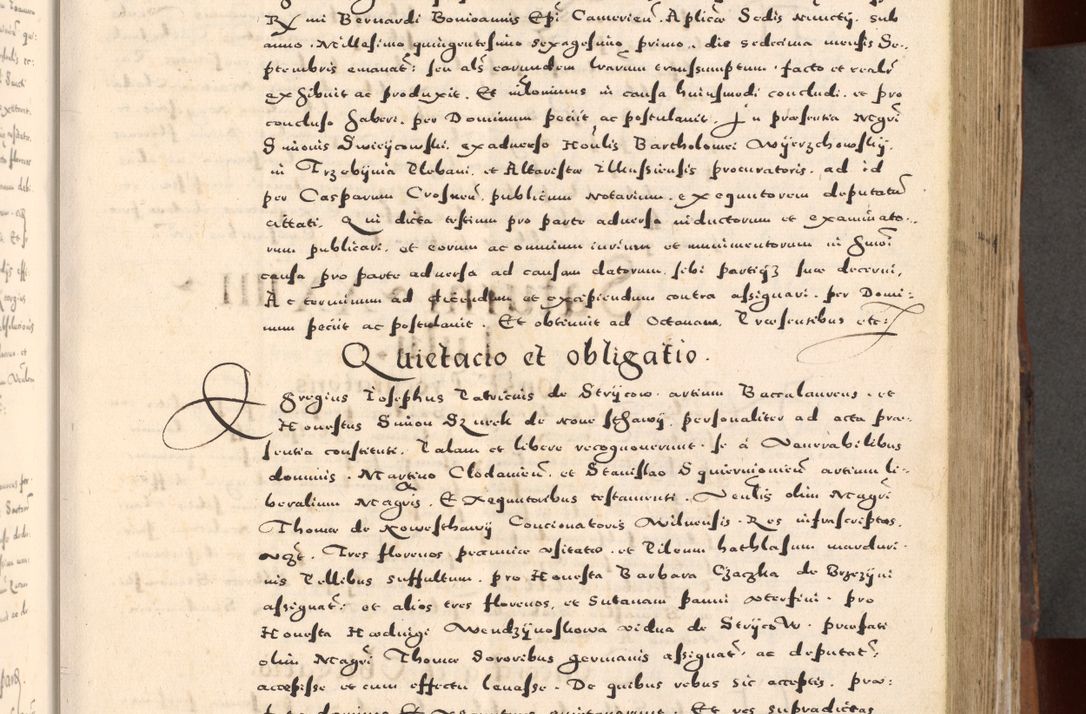 R mi Bernardi Bonioannis Epi Camerien̄. Aplicæ Sedis Nunctÿ. sub
anno. Millesimo quingentesimo sexagesimo primo. die sedecima mensis Se-
ptembris emanat: seu als earundem lrarum transsumptum. facto et realr
exhibuit ac produxit. Et nilominus in causa huiusmodi concludi. et pro
concluso haberi. per Dominum peciit ac postulauit. In præsentia Mgri
Simonis Swieÿcowski. exaduerso Honlis Bartholomei Wÿerzchowskÿ.
in Trzebÿnia Plebani. et Altaristæ Illkussiensis procuratoris. ad id
per Casparum Crosnen̄. publicum Notarium. exequutorem deputatū
citati. Qui dicta testium pro parte aduerso inductorum et examinato-
rum publicari. et eorum ac omnium iurium et munimentorum in hmoi
causa pro parte aduersa ad causam datorum. sibi partiqз suæ decerni.
Ac terminum ad dicendum et excipiendum contra assignari. per Domi-
num peciit ac postulauit. Et obtinuit ad Octauam. Præsentibus etc:
Quietacio et obligatio.
Egregius Iosephus Patricius de Strÿcow. artium Baccalaureus. et
Honestus Simon Dzurek de Noue sthawÿ. personaliter ad acta præ-
sentia constituti. Palam et libere recognouerunt. se á Venerabilibus
dominis Martino Clodawien̄. et Stanislao Squiernieuicen̄ artium li-
beralium Magris. Exequutoribus testamenti. Venlis olim Magri
Thomæ de Nowesthawÿ Concionatoris Wilnensis. Res infrascriptas.
vzt. Tres florenos pecuniæ vsitatæ. et Pileum hathlasum marduri-
nis Pellibus suffultum. pro Honesta Barbara Czaczka de Brzezÿni
assignat: et alios tres florenos. et Sutanam panni vterfini. pro
Honesta Hæduigi Wendzÿnoskowa vidua de Strÿcow. præfati
olim Magri Thomæ Sororibus germanis assignat: ac deputat:
accepisse et cum effectu leuasse. De quibus rebus sic acceptis. præ-
Et res supradictas